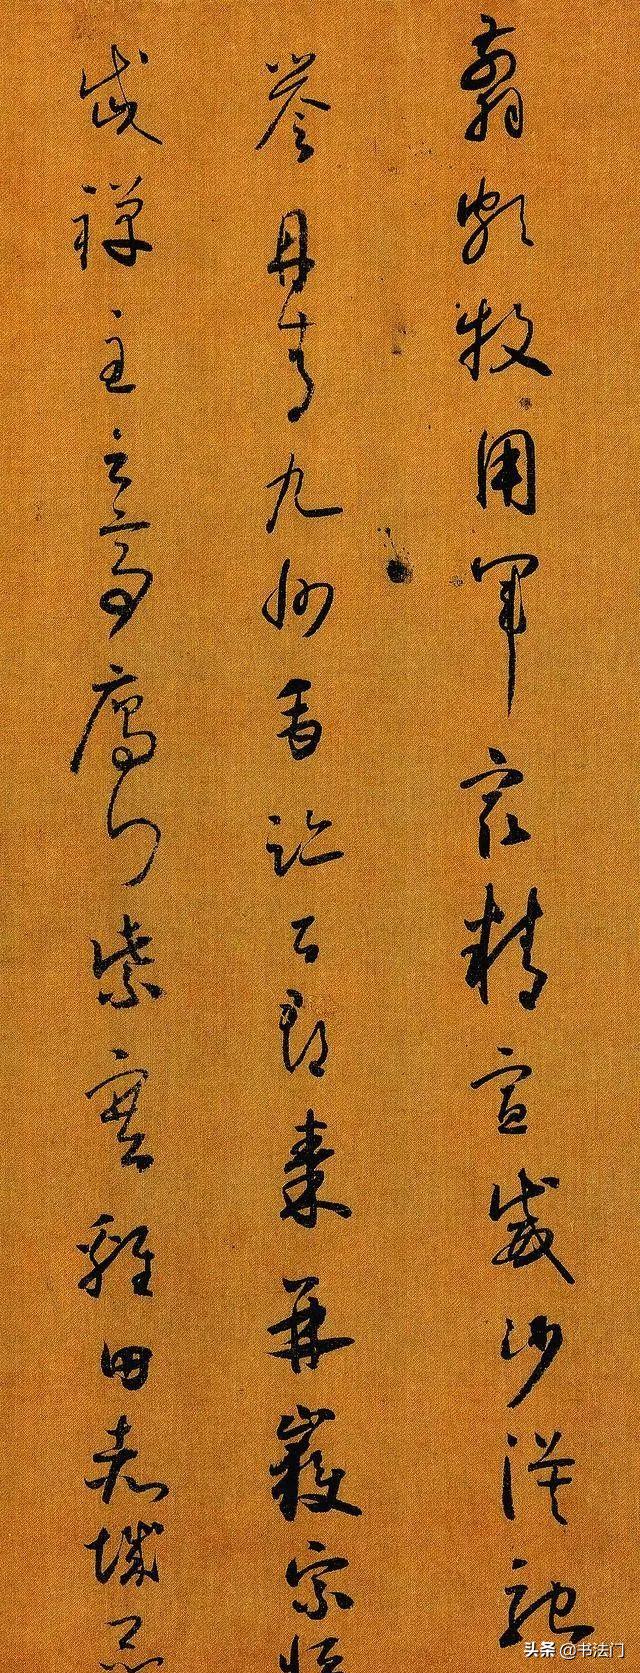 翦頗牧用軍最精宣威沙漠馳
譽丹青九州禹跡百郡秦并嶽宗恒
岱禪主云亭鴈門紫塞雞田赤城昆
头条 @书法门